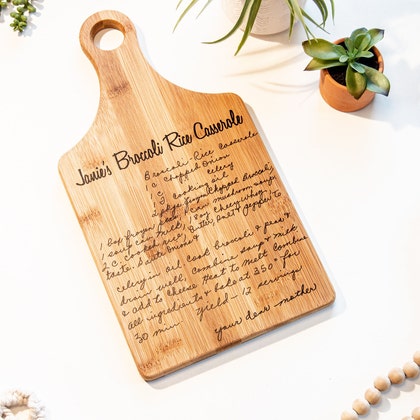 Janie's Broccoli Rice Casserole
Broccoli-Rice Casserole
1 C chopped onion
1 C celery
cooking oil
2 pkgs frozen chopped broccoli
1 box frozen
1 soup can mushroom soup
2 C. cooked rice, 1 8oz cheez whiz
taste. Sauté onion & pepper to
celery in oil cook broccoli & peas &
drain well, combine soup & milk
& add to cheese heat to melt combine
all ingredients & bake at 350° for
30 min. Yield - 12 servings
your dear mother